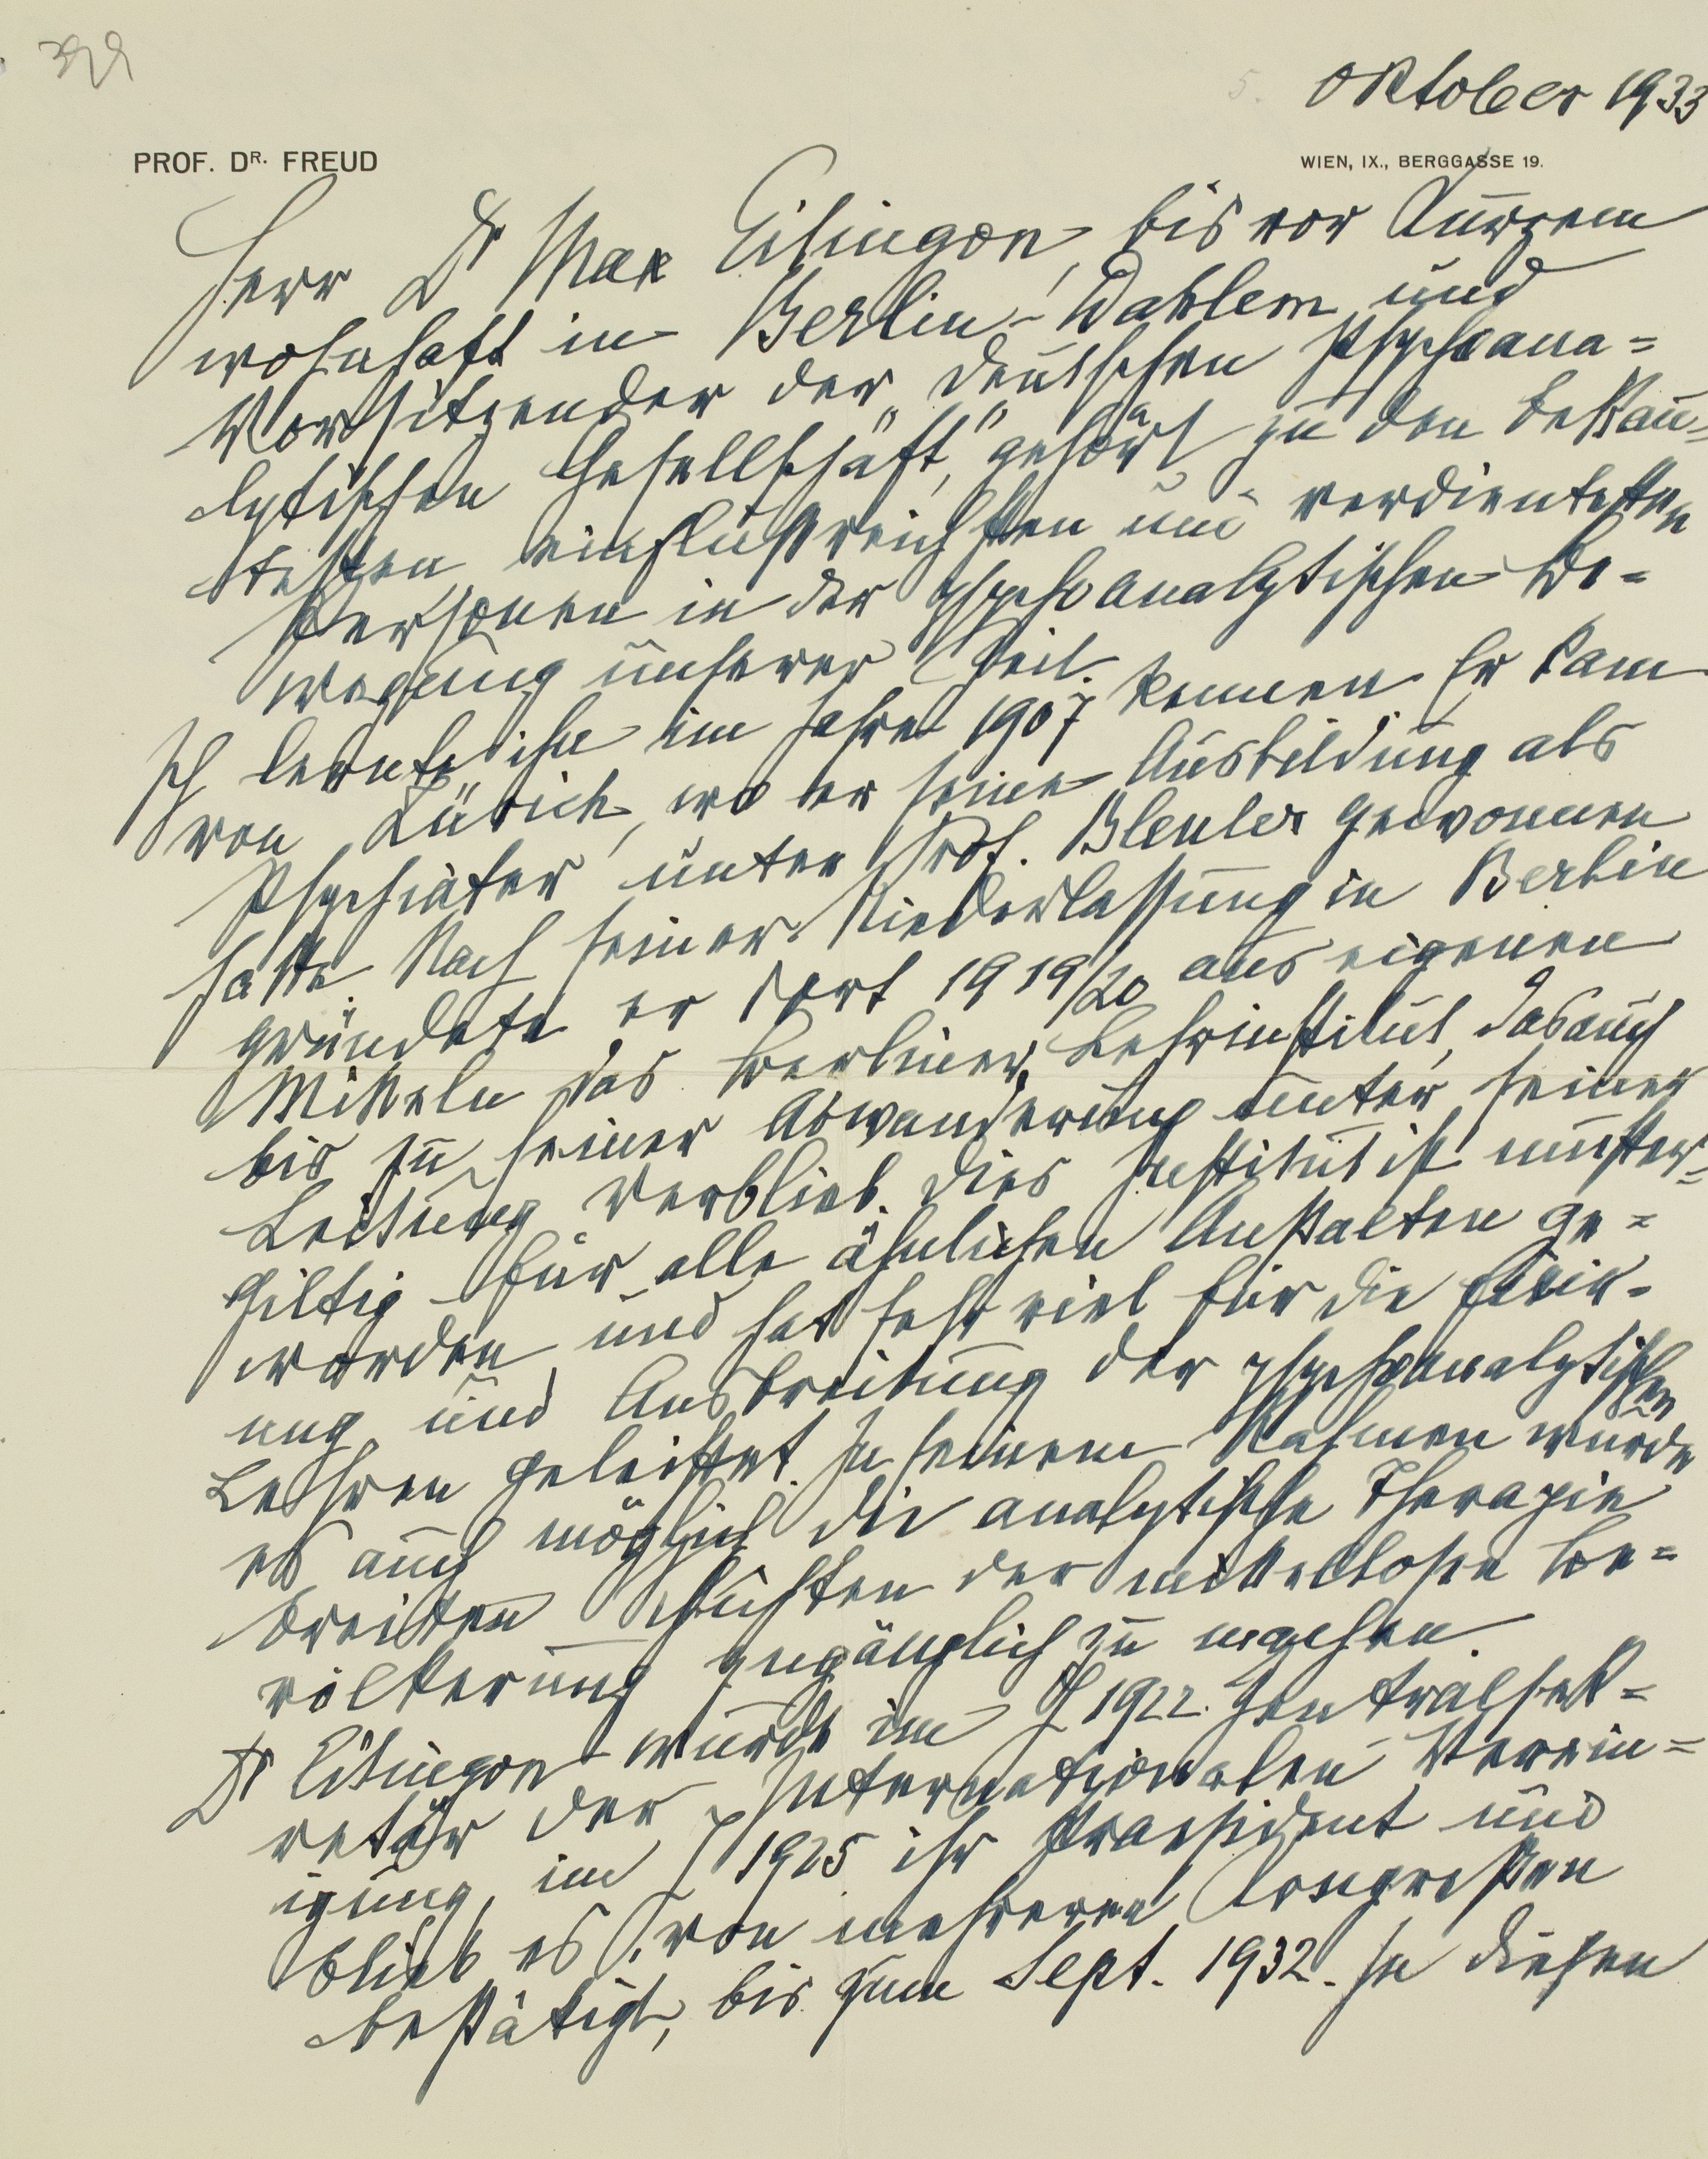 5. Oktober 1933
PROF. DR. FREUD
WIEN, IX., BERGGASSE 19.
Herr Dr Max Eitingon, bis vor Kurzem
wohnhaft in Berlin-Dahlem und
Vorsitzender der „Deutschen Psychoana=
lytischen Gesellschaft“, gehört zu den bekann-
testen, einflußreichsten und verdientesten
Personen in der psychoanalytischen Be=
wegung unserer Zeit.
Ich lernte ihn im Jahre 1907 kennen. Er kam
von Zürich, wo er seine Ausbildung als
Psychiater unter Prof. Bleuler gewonnen
hatte. Nach seiner Niederlassung in Berlin
gründete er dort 1919/20 aus eigenen
Mitteln das Berliner Lehrinstitut, das auch
bis zu seiner Abwanderung unter seiner
Leitung verblieb. Dies Institut ist muster=
giltig für alle ähnlichen Anstalten ge=
worden und hat sehr viel für die
und Ausbreitung der psychoanalytischen
Lehren geleistet. In seinem Rahmen wurde
es auch möglich die analytische Therapie
breiten Schichten der mittellosen Be=
völkerung zugänglich zu machen.
Dr Eitingon wurde im J 1922 Zentralsek=
retär der Internationalen Verein=
igung, im J 1925 ihr Praesident und
blieb es, von mehreren Kongressen
bestätigt, bis zum Sept. 1932. In diesen